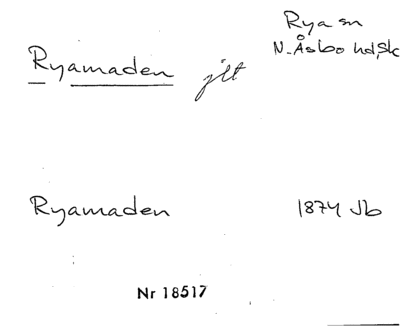 Rya sn
N. Åsbo hd, Sk
Ryamaden jlt
Ryamaden 1874 Jb
Nr 18517